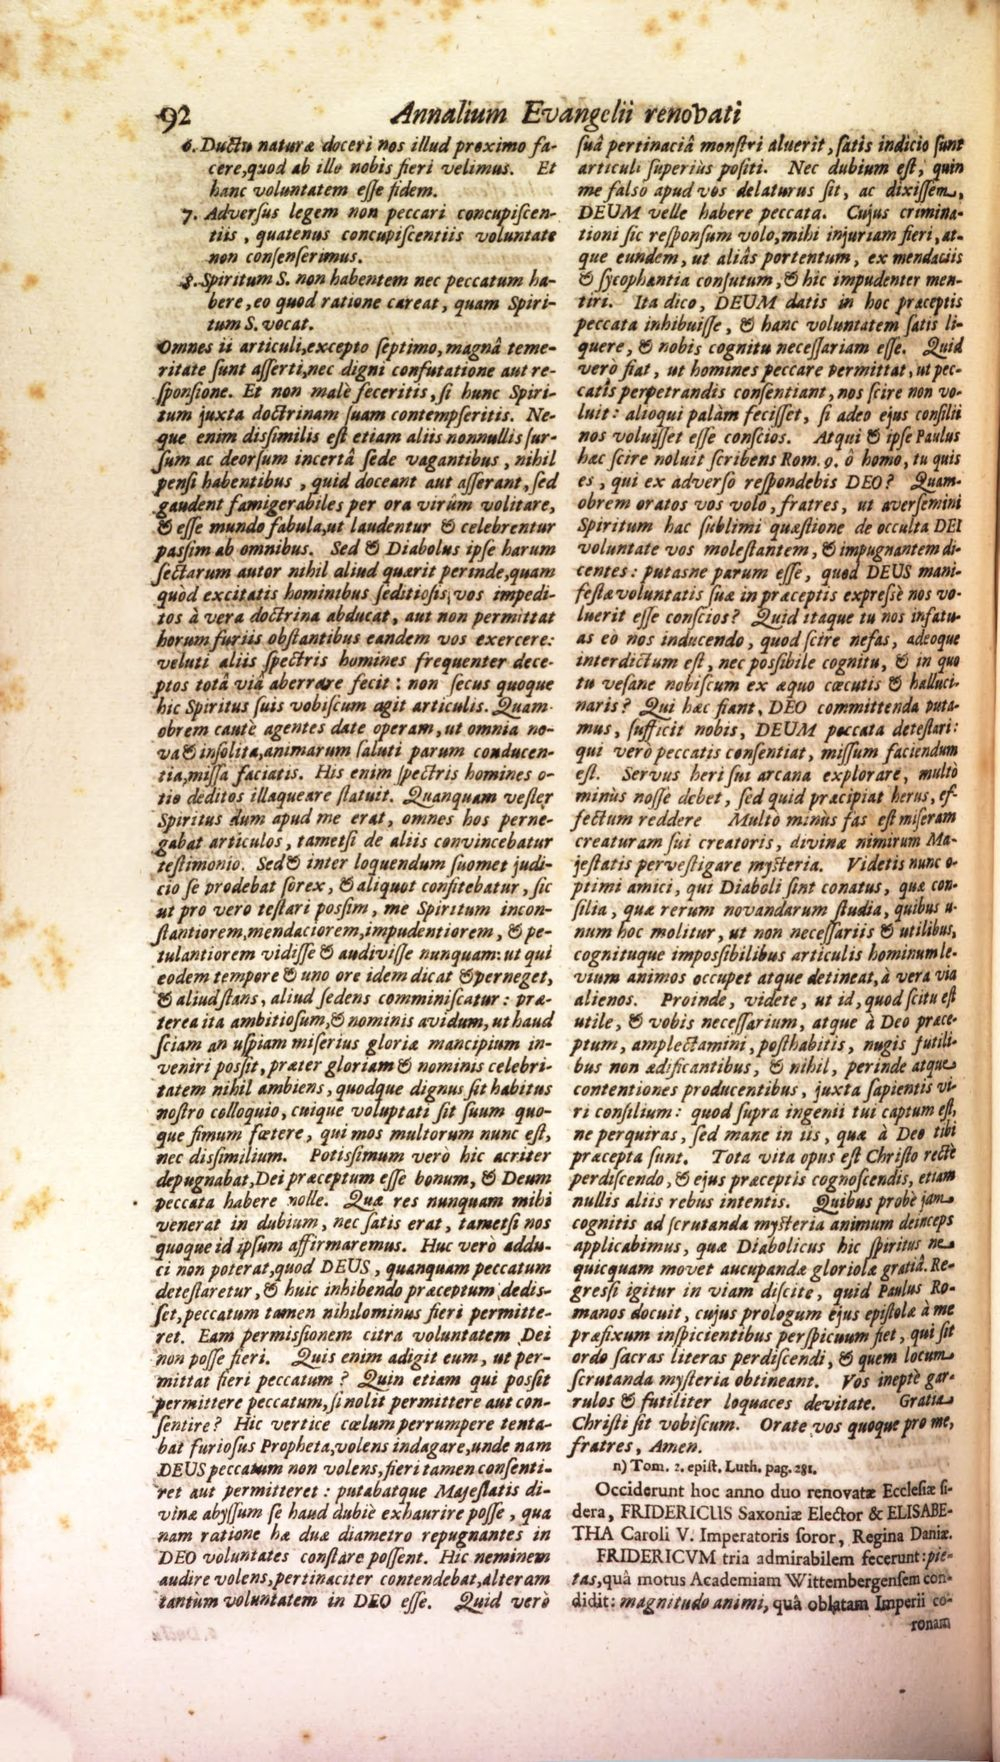 92 Annalium Evangelii renovati
6. Ductu naturæ doceri nos illud proximo fa-
cere, quod ab illo nobis fieri velimus. Et
hanc voluntatem esse fidem.
7. Adversus legem non peccari concupiscen-
tiis, quatenus concupiscentiis voluntate
non consenserimus.
8. Spiritum S. non habentem nec peccatum ha-
bere, eo quod ratione careat, quam Spiri-
tum S. vocat.
Omnes ii articuli, excepto septimo, magnâ teme-
ritate sunt asserti, nec digni confutatione aut re-
sponsione. Et non malè feceritis, si hunc Spiri-
tum juxta doctrinam suam contempseritis. Ne-
que enim dissimilis est etiam aliis nonnullis sur-
sum ac deorsum incertâ sede vagantibus, nihil
pensi habentibus, quid doceant aut asserant, sed
gaudent famigerabiles per ora virûm volitare,
& esse mundo fabula, ut laudentur & celebrentur
passim ab omnibus. Sed & Diabolus ipse harum
sectarum autor nihil aliud quærit perinde, quam
quod excitatis hominibus seditiosis, vos impedi-
tos à vera doctrina abducat, aut non permittat
horum furiis obstantibus eandem vos exercere:
veluti aliis spectris homines frequenter dece-
ptos totâ viâ aberrare fecit: non secus quoque
hic Spiritus suis vobiscum agit articulis. Quam-
obrem cautè agentes date operam, ut omnia no-
va & insolita, animarum saluti parum conducen-
tia, missa faciatis. His enim spectris homines o-
tio deditos illaqueare statuit. Quanquam vester
Spiritus dum apud me erat, omnes hos perne-
gabat articulos, tametsi de aliis convincebatur
testimonio. Sed & inter loquendum suomet judi-
cio se prodebat sorex, & aliquot confitebatur, sic
ut pro vero testari possim, me Spiritum incon-
stantiorem, mendaciorem, impudentiorem, & pe-
tulantiorem vidisse & audivisse nunquam: ut qui
eodem tempore & uno ore idem dicat & perneget,
& aliud stans, aliud sedens comminiscatur: præ-
terea ita ambitiosum, & nominis avidum, ut haud
sciam an uspiam miserius gloriæ mancipium in-
veniri possit, præter gloriam & nominis celebri-
tatem nihil ambiens, quodque dignus sit habitus
nostro colloquio, cuique voluptati sit suum quo-
que fimum fœtere, qui mos multorum nunc est,
nec dissimilium. Potissimum verò hic acriter
depugnabat, Dei præceptum esse bonum, & Deum
peccata habere nolle. Quæ res nunquam mihi
venerat in dubium, nec satis erat, tametsi nos
quoque id ipsum affirmaremus. Huc verò addu-
ci non poterat, quod DEUS, quanquam peccatum
detestaretur, & huic inhibendo præceptum dedis-
set, peccatum tamen nihilominus fieri permitte-
ret. Eam permissionem citra voluntatem Dei
non posse fieri. Quis enim adigit eum, ut per-
mittat fieri peccatum? Quin etiam qui possit
permittere peccatum, si nolit permittere aut con-
sentire? Hic vertice cœlum perrumpere tenta-
bat furiosus Propheta, volens indagare, unde nam
DEUS peccatum non volens, fieri tamen consenti-
ret aut permitteret: putabatque Majestatis di-
vinæ abyssum se haud dubiè exhaurire posse, qua
nam ratione hæ duæ diametro repugnantes in
DEO voluntates constare possent. Hic neminem
audire volens, pertinaciter contendebat, alteram
tantùm voluntatem in DEO esse. Quid verò
suâ pertinaciâ monstri aluerit, satis indicio sunt
articuli superiùs positi. Nec dubium est, quin
me falsò apud vos delaturus sit, ac dixissem,
DEUM velle habere peccata. Cujus crimina-
tioni sic responsum volo, mihi injuriam fieri, at-
que eundem, ut aliâs portentum, ex mendaciis
& sycophantia consutum, & hic impudenter men-
tiri. Ita dico, DEUM datis in hoc præceptis
peccata inhibuisse, & hanc voluntatem satis li-
quere, & nobis cognitu necessariam esse. Quid
verò fiat, ut homines peccare permittat, ut pec-
catis perpetrandis consentiant, nos scire non vo-
luit: alioqui palàm fecisset, si adeo ejus consilii
nos voluisset esse conscios. Atqui & ipse Paulus
hæc scire noluit scribens Rom. 9. ô homo, tu quis
es, qui ex adverso respondebis DEO? Quam-
obrem oratos vos volo, fratres, ut aversemini
Spiritum hac sublimi quæstione de occulta DEI
voluntate vos molestantem, & impugnantem di-
centes: putasne parum esse, quod DEUS mani-
festæ voluntatis suæ in præceptis expressè nos vo-
luerit esse conscios? Quid itaque tu nos infatu-
as eo nos inducendo, quod scire nefas, adeoque
interdictum est, nec possibile cognitu, & in quo
tu vesane nobiscum ex æquo cœcutis & halluci-
naris? Qui hæc fiant, DEO committenda puta-
mus, sufficit nobis, DEUM peccata detestari:
qui verò peccatis consentiat, missum faciendum
est. Servus heri sui arcana explorare, multò
minùs nosse debet, sed quid præcipiat herus, ef-
fectum reddere Multò minùs fas est miseram
creaturam sui creatoris, divinæ nimirum Ma-
jestatis pervestigare mysteria. Videtis nunc o-
ptimi amici, qui Diaboli sint conatus, quæ con-
silia, quæ rerum novandarum studia, quibus u-
num hoc molitur, ut non necessariis & utilibus,
cognituque impossibilibus articulis hominum le-
vium animos occupet atque detineat, à vera via
alienos. Proinde, videte, ut id, quod scitu est
utile, & vobis necessarium, atque à Deo præce-
ptum, amplectamini, posthabitis, nugis futili-
bus non ædificantibus, & nihil, perinde atque
contentiones producentibus, juxta sapientis vi-
ri consilium: quod supra ingenii tui captum est,
ne perquiras, sed mane in iis, quæ à Deo tibi
præcepta sunt. Tota vita opus est Christo rectè
perdiscendo, & ejus præceptis cognoscendis, etiam
nullis aliis rebus intentis. Quibus probè jam
cognitis ad scrutanda mysteria animum deinceps
applicabimus, quæ Diabolicus hic spiritus ne
quicquam movet aucupandæ gloriolæ gratiâ. Re-
gressi igitur in viam discite, quid Paulus Ro-
manos docuit, cujus prologum ejus epistolæ à me
præfixum inspicientibus perspicuum fiet, qui sit
ordo sacras literas perdiscendi, & quem locum
scrutanda mysteria obtineant. Vos ineptè gar-
rulos & futiliter loquaces devitate. Gratia
Christi sit vobiscum. Orate vos quoque pro me,
fratres, Amen.
n) Tom. 2. epist. Luth. pag. 281.
Occiderunt hoc anno duo renovatæ Ecclesiæ si-
dera, FRIDERICUS Saxoniæ Elector & ELISABE-
THA Caroli V. Imperatoris soror, Regina Daniæ.
FRIDERICVM tria admirabilem fecerunt: pie-
tas, quâ motus Academiam Wittembergensem con-
didit: magnitudo animi, quâ oblatam Imperii co-
ronam